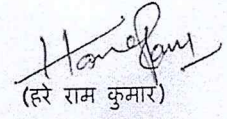 (हरे राम कुमार)